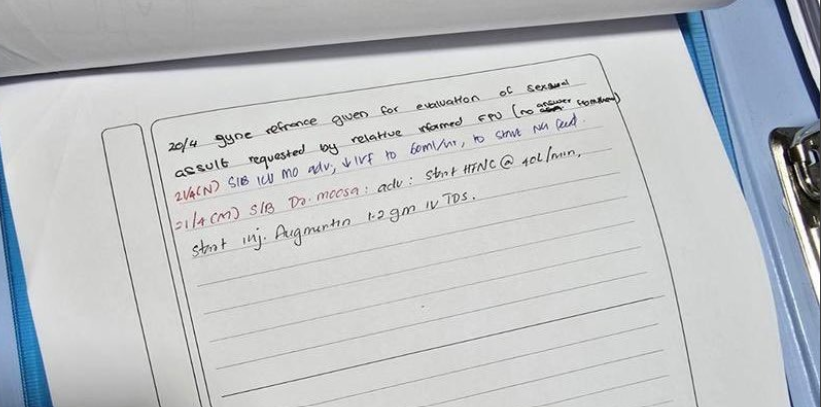 20/4 gyne refrence given for evaluation of sexual
assult requested by relative informed FPU (no answer
21/4(N) S/B ICU MO adv; ↓ IVF to 60ml/hr, to start NG feed.
21/4(M) S/B Dr. moosa: adv: start HFNC @ 40L/min,
start inj. Augmentin 1.2 gm IV TDS.